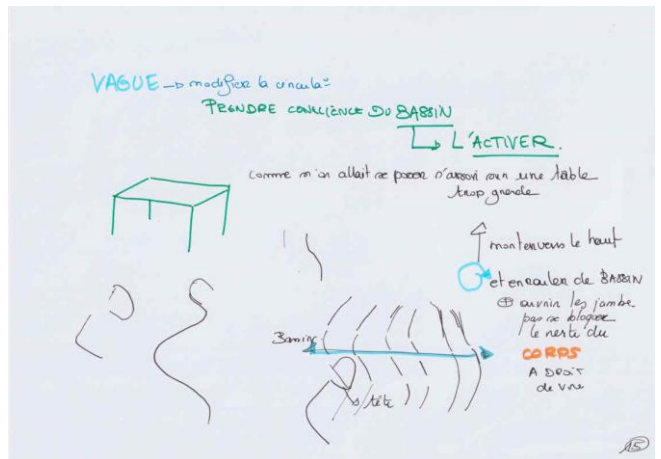 VAGUE → modifier la circula°
PRENDRE CONSCIENCE DU BASSIN
↳ L'ACTIVER.
comme si on allait se poser s'assoir sur une table
trop grande
monter vers le haut
et enrouler le BASSIN
⊕ ouvrir les jambe
pas se bloquer
le reste du
CORPS
A DROIT
de vivre
Bassin
tête
15